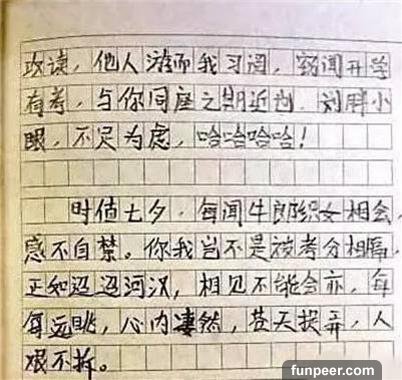 攻读，他人游而我习阅，窃闻开学
有考，与你同座之期近则，刘胖小
眼，不足为虑，哈哈哈哈！
时值七夕，每闻牛郎织女相会，
感不自禁。你我岂不是被考分相隔，
正如迢迢河汉，相见不能会亦，每
每远眺，心内凄然，苍天捉弄，人
艰不拆。
funpeer.com